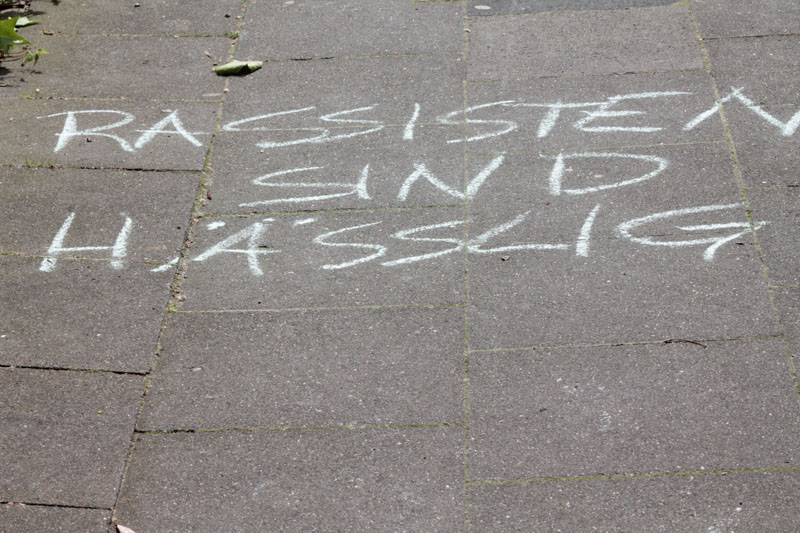 RASSISTEN
SIND
HÄSSLIG